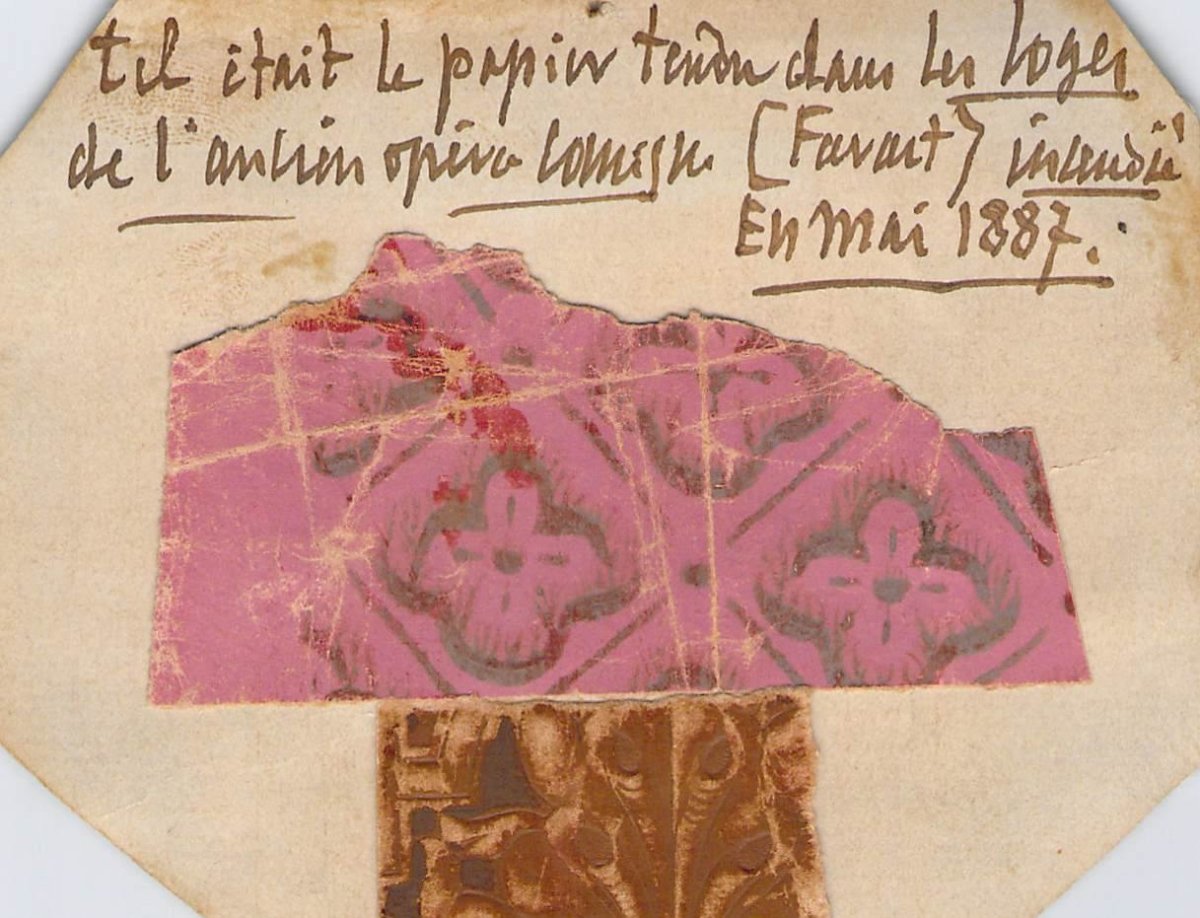 tel était le papier tendu dans les loges
de l'ancien opéra comique (Favart) incendié
En Mai 1887.